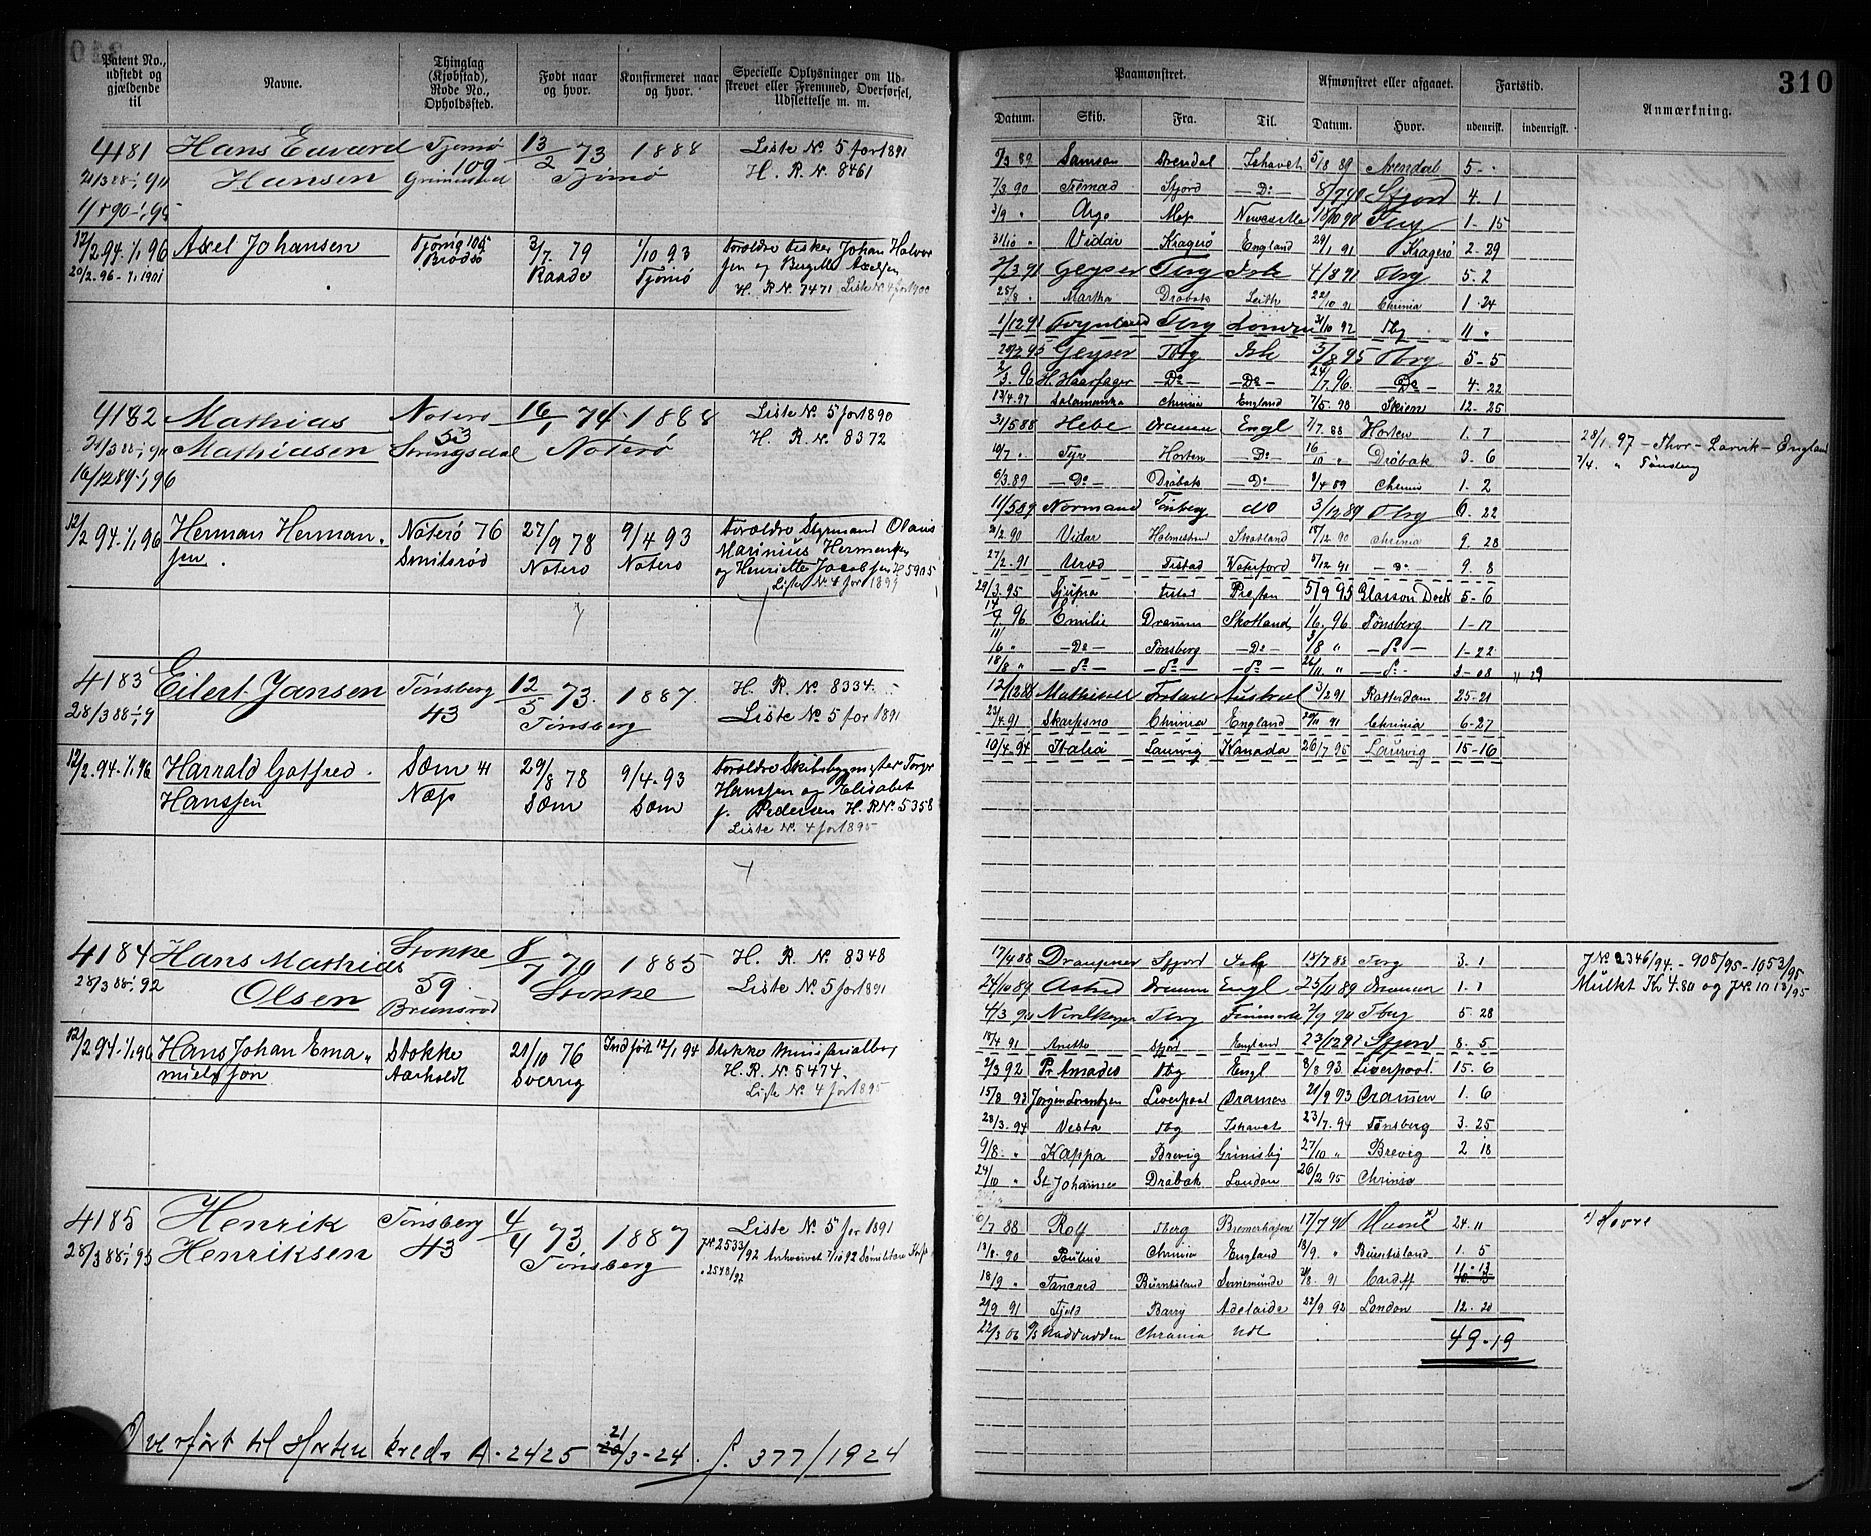 310
Patent No., udstedt og gjældende til
Navne.
Thinglag (Kjøbstad), Rode No., Opholdssted.
Født naar og hvor.
Konfirmeret naar og hvor.
Specielle Oplysninger om Udskrevet eller Fremmed, Overførsel, Udslettelse m. m.
4181 Hans Edvard Tjømø 13/2 73 1888 Liste No. 5 for 1891
21/3 88-1/1 91 Hansen 109 Tjømø H. R. N. 8461
12/2 94-1/1 96 Axel Johansen Tjømø 105 3/7 79 1/10 93 Forældre fisker Johan Halvor
20/2 96-1/1 1901 Brødsø Raade Tjømø sen og Bergitte Axelsen
H. R N. 7471 Liste N. 4 for 1900
4182 Mathias Nøterø 16/1 74 1888 Liste No. 5 for 1890
Mathiasen 53 Nøterø H. R. No. 8372
16/12 89-1/1 96
12/2 94-1/1 96 Herman Herman- Nøterø 76 27/9 78 9/4 93 Forældre Styrmand Olaus
sen. Smidsrød Nøterø Nøterø Marinius Hermansen
og Henriette Jacobsen H 5905
Liste N. 4 for 1899
4183 Eilert Jansen Tønsberg 12/5 73 1887 H. R. No. 8334.
28/3 88-1/1 9 43 Tønsberg Liste No. 5 for 1891
12/2 94-1/1 96 Harrald Gotfred Sæm 41 29/8 78 9/4-93 Forældre Skibsbygmester Torger
Hanssen Næs Sæm Sæm Hanssen og Elisabet
f. Pedersen H. R No. 5358
Liste N. 4 for 1895
4184 Hans Mathias Stokke 8/7 70 1885 H. R. No 8348
28/3 88-1/1 92 Olsen 59 Stokke Liste No. 5 for 1891
Brunsrød
12/2 94-1/1 96 Hans Johan Ema- Stokke 21/10 76 Indført 12/1 94 Stokke Ministerialbog
nuelssen Aarholdt Sverrig H. R. N. 5474.
Liste N. 4 for 1895
4185 Henrik Tønsberg 4/4 73 1887 Liste No. 5 for 1891
28/3 88-1/1 93 Henriksen 43 Tønsberg JNo 2533/92
2548/92
Overført til Horten kreds A-2425 21/3-24. J. 377/1924
Paamønstret.
Afmønstret eller afgaaet.
Fartstid.
Anmærkning.
310
Datum. Skib. Fra. Til. Datum. Hvor. udenrigsk. indenrigsk.
5/3 89 Samson Arendal Ishavet 5/8 89 Arendal 5 -
7/3 90 Fremad Sfjord - Do - 8/7 90 Sfjord 4. 1
3/9 " Argo Mos Newcastle 18/10 90 Tbrg 1-15
31/10 " Vidar Kragerø England 29/1 91 Kragerø 2-29
2/3 91 Geyser Tbrg Ish 4/8 91 Tbrg 5.2
25/8 " Martha Drøbak Leith 22/10 91 Chrinia 1.24
1/12 91 Foynland Tbrg London 31/10 92 Tbg 11 "
Geyser Tbrg Ish 3/8 95 Tbrg 5-5
2/3. 96 H. Haarfager - Do - - Do - 24/7. 96 - Do - 4. 22
13/4-97 Salamanka Chrinia England 7/5. 98 Skien 12-25
31/5 88 Hebe Dramm Engl 7/7 88 Horten 1. 7
28/1. 97 - Thor - Larvik - England
7/4. " Tønsberg
10/7 " Tyre Horten - Do - 16/10 " Drøbak 3. 6
6/3. 89 - Do - Drøbak - Do - 8/4 89 Chrinia 1. 2
11/5 89 Normand Tnberg do 3/12 89 Tbrg 6. 22
21/2. 90 Vidar Holmestrand Skotland 18/12 90 Chrinia 9. 28
27/2.91 Uræd Fr.stad Waterford 5/12 91 - Do - 9. 8
29/3. 95 Gjufra Fr.stad Preston 5/9 95 Glasson Dock 5-6
14/4. 96 Emilie Dramm Skotland 1/6. 96 Tønsberg 1-17
11/6 " - Do - Tønsberg - Do - 3/8 " - Do - 1-22
18/8 " - Do - - Do - - Do - 26/11 " - Do - 3-08 " 29
12/12 88 Austral 3/2 91 Rotterdam 25-21
23/4.91 Skarpsno Chrinia England 20/11 91 Chrinia 6-27
10/4.94 Italia Laurvig Kanada 26/7 95 Laurvig 15-16
17/4 88 Draupner Sfjord Ish 18/7 88 Tbrg 3. 1
JNo 2346/94. - 908/95 - 1053/95
Mulkt Kr 4.80 og JNo 1012/95
24/10 89 Astrid Dramm Engl 25/11 89 Drammen 1. 1
4/3. 90 Nordkaper Tbrg Finmark 1/9 90 Tbrg 5. 28
18/4 91 Anette Sfjord England 23/12 91 Sfjord 8. 5
2/3 92 Pr Amadeo Tbg Engl 8/8 93 Liverpool 15. 6
15/8 93 Jørgen Lorentzen Liverpool Dramen 21/9 93 Dramen 1. 6
28/3-94 Vesta Tbg Ishavet 23/7. 94 Tønsberg 3. 25
9/8. " Kappa Brevig Grimsby 27/10 " Brevig 2 18
29/10 " St. Johannes Drøbak London 26/2 95 Chrinia
6/7 88 Rolf Tbrg Bremerhafen 17/7 90 Havre x) 24. 11
x) Havre
13/8. 90 Paulino Chrinia England 18/9. " Burntisland 1. 5
18/9 " Tancred Burntisland Svinemünde 21/8. 91 Cardiff 11-13
21/9 91 Fjeld Barry Adelaide 22/9 92 London 12. 20
22/3 06 Chrania Udl
49-19